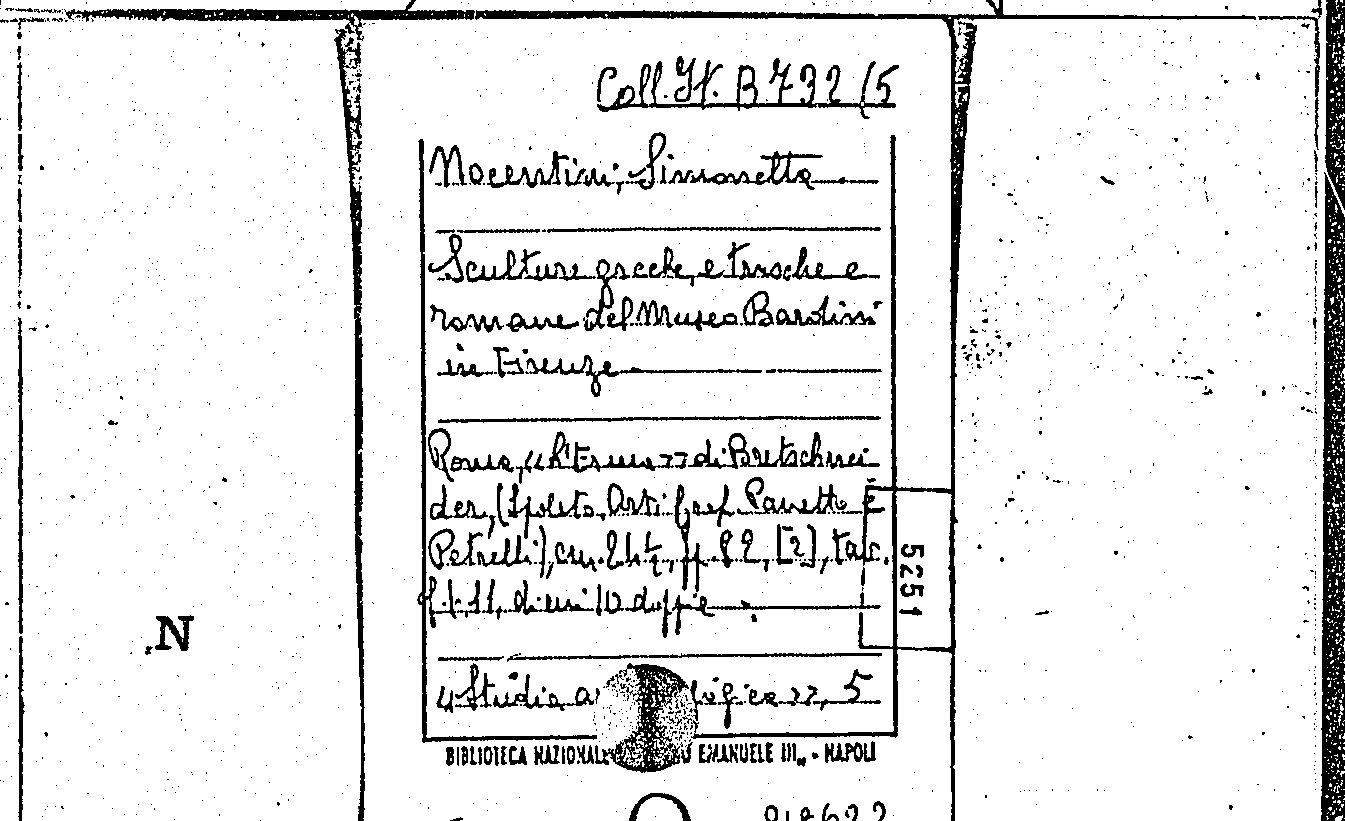 Coll. It. B 792/5
Nocentini, Simonetta.
Sculture greche, etrusche e
romane del Museo Bardini
in Firenze.
Roma, «L'Erma» di Bretschnei
der, (Spoleto, Arti Graf. Panetto e
Petrelli), cm. 24½, pp. 82, [2], tavv.
f.t. 11, di cui 10 doppie.
5251
N
«Studia a ologica», 5
BIBLIOTECA NAZIONALE EMANUELE III„ - NAPOLI